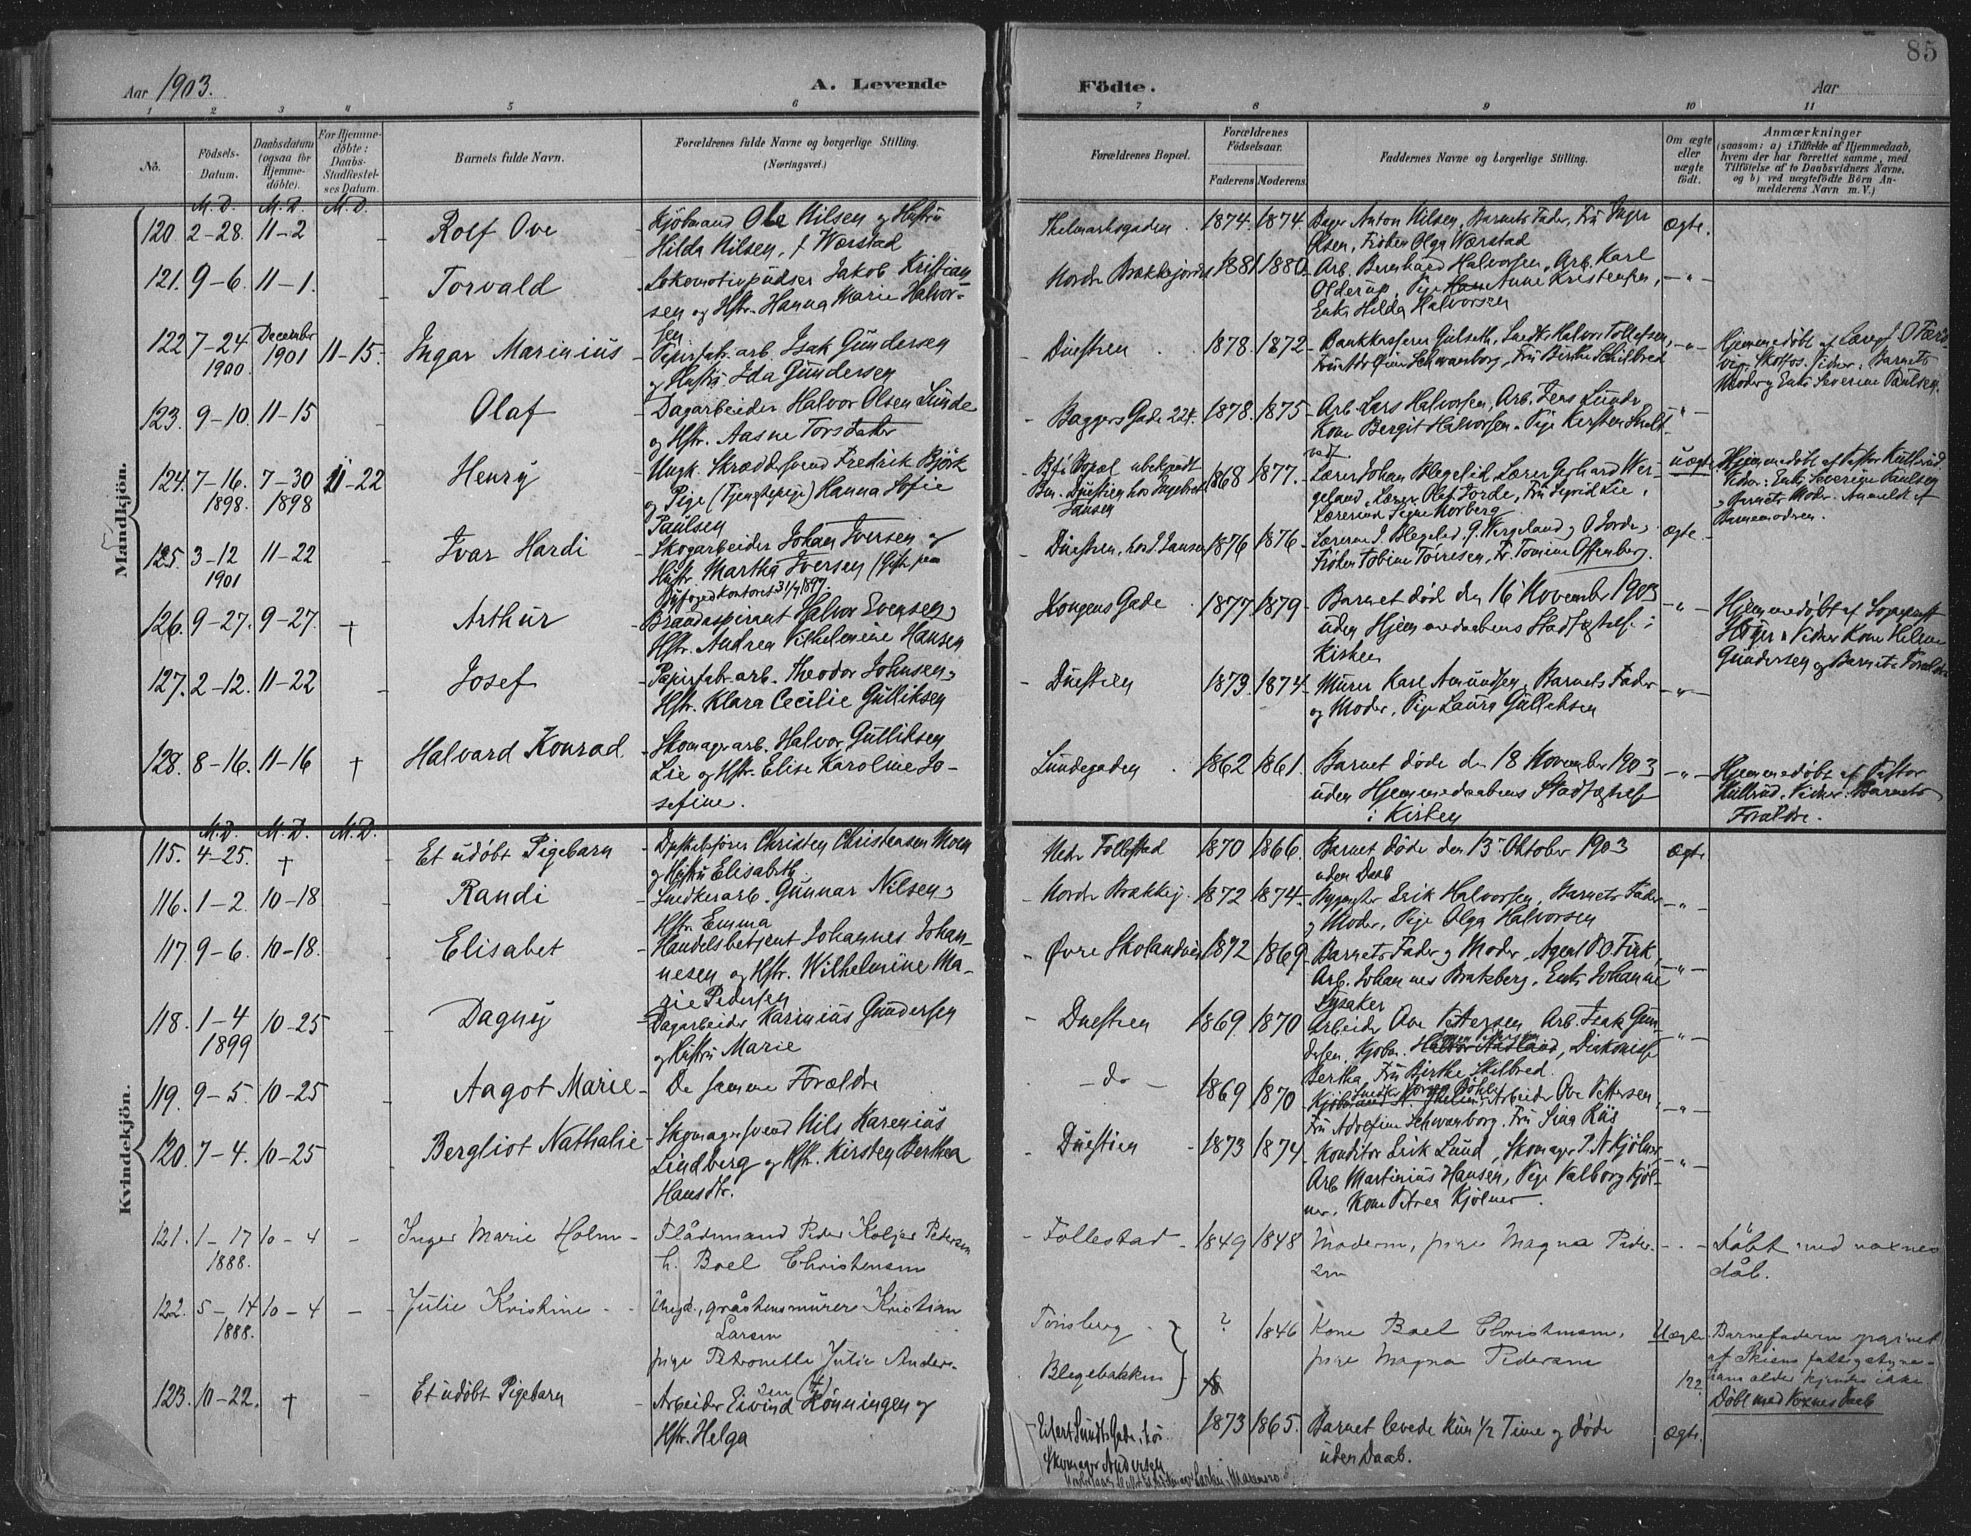 85
Aar 1903.
A. Levende
Födte.
Aar
1 2 3 4 5 6 7 8 9 10 11
No.
Födsels-Datum.
Daabsdatum (ogsaa for Hjemme-döbte).
For Hjemme-döbte: Daabs-Stadfæstelses Datum.
Barnets fulde Navn.
Forældrenes fulde Navne og borgerlige Stilling.
(Næringsvei.)
Forældrenes Bopæl.
Forældrenes Födselsaar.
Faderens. Moderens.
Faddernes Navne og borgerlige Stilling.
Om ægte eller uægte født.
Anmærkninger
(saasom: a) i Tilfælde af Hjemmedaab, hvem der har forrettet samme, med Tilföielse af to Daabsvidners Navne, og b) ved uægtefödte Börn Anmelderens Navn m. V.)
Mandkjön.
M. D. M. D. M. D.
120. 2-28. 11-2 - Rolf Ove - Kjöbmand Ole Nilsen og Hustru
Hilda Nilsen, f. Værstad
Thelmarksgaden. 1874. 1874. Bager Anton Nilsen, Barnets Fader, Fru Inga
Olsen, Fröken Olga Værstad
ægte.
121. 9-6. 11-1. - Torvald - Lokomotivpudser Jakob Kristian
sen og Hstr. Hanna Marie Halvor-
sen
Nordre Brækkejordet 1881 1880. Arb. Bernhard Halvorsen, Arb. Karl
Olderup, Pige Anne Kristensen,
Enke Hilda Halvorsen
122 7-24 1900. December 1901 11-15. Ingar Marinius - Papirfabr. arb. Isak Gundersen
og Hustru Ida Gundersen
- Duestien. 1878. 1872. Bankkasserer Gulseth, Snedk. Halvor Tollefsen,
Fru Adrefine Schwanborg, Fru Birthe Skilbred
Hjemmedøbt af Lærer J. O.
Skotfos. Vidner: Barnets
Moder og Enke Severine Paulsen.
123. 9-10. 11-15 - Olaf - Dagarbeider Halvor Olsen Lunde
og Hstr. Aasne Torsdatter
- Baggers Gade 224. 1878. 1875. Arb. Lars Halvorsen, Arb. Jens Lunde
Kone Bergit Halvorsen. Pige Kersten
124. 7-16. 1898. 7-30 1898 11-22 Henry - Ungk. Skræddersvend Fredrik Björk
og Pige (Tjenestepige) Hanna Sofie
Paulsen
Bf. Bopæl ubekjendt
Bm. Duestien hos Ingebret
Jansen
1868 1877. Lærer Johan Blegelid, Lærer Gerhard Wer-
geland, Lærer Olaf Jorde, Fru Sigrid Lie,
Lærerinde Signe Norberg
uægte
Hjemmedøbt af Pastor Kullerud
Vidner: Enke Severine Paulsen
og Barnets Moder. Anmeldt af
Barnemoderen.
125. 3-12 1901 11-22 Ivar Hardi - Skogarbeider Johan Iversen og
Hustr. Martha Iversen (Gift paa
Byfogedkontoret 31/7 1897.
- Duestien, hos J. Jansen 1876 1876. Lærerne J. Blegelid, G. Wergeland og O. Jorde,
Fröken Tobine Törresen, Fr. Tomine Offenberg.
ægte.
126. 9-27. 9-27. † Arthur - Brandaspirant Halvor Evensen,
Hstr. Andrea Vilhelmine Hansen
- Kongens Gade. 1877 1879. Barnet död den 16 November 1903
uden Hjemmedaabens Stadfæstelse i
Kirken
Hjemmedøbt af Sogneprest
Vidner Kone Helene
Gundersen og Barnets Forældre
127. 2-12. 11-22 - Josef - Papirfabr. arb. Theodor Johnsen,
Hstr. Klara Cecilie Gulliksen
- Duestien 1873 1874. Murer Karl Amundsen, Barnets Fader
og Moder, Pige Laura Gulliksen
128. 8-16. 11-16 † Halvard Konrad - Skomagerarb. Halvor Gulliksen
Lie og Hstr. Elise Karoline Jo-
sefine.
Lundegaden. 1862 1861. Barnet døde den 18 November 1903
uden Hjemmedaabens Stadfæstelse
i Kirken
Hjemmedøbt af Pastor
Kullerud. Vidner: Barnets
Forældre.
Kvindekjön.
M. D. M. D. M. D.
115. 4-25. † - Et udøbt Pigebarn - Dyskabsfører Christen Christensen Moen
og Hustru Elisabeth
Nedr Follestad 1870 1866. Barnet døde den 13 Oktober 1903
uden Daab
ægte.
116. 1-2. 10-18 - Randi - Snedkerarb. Gunnar Nilsen,
Hstr. Emma
- Nordre Brækkej. 1872 1874. Bygmester Erik Halvorsen, Barnets Fader
og Moder, Pige Olga Halvorsen
117 9-6. 10-18. - Elisabet - Handelsbetjent Johannes Johan-
nesen og Hstr. Wilhelmine Ma-
rie Pedersen
- Øvre Skolandveien 1872 1869. Barnets Fader og Moder, Agent P. O. Firk,
Arb. Johannes Bratsberg, Enke Johanne
Lysaker
118. 1-4 1899 10-25 - Dagny - Dagarbeider Karinius Gundersen
og Hustru Marie
- Duestien 1869 1870 Arbeider Ove Pettersen Arb. Isak Gun-
dersen, Kjøbm. Halvor Aadland, Diakonisse
Bertha, Fru Birthe Skilbred.
119. 9-5. 10-25 - Aagot Marie - De samme Forældre
- do - 1869 1870 Arbeider Ove Pettersen,
Fru Adrefine Schwanborg, Fru Sina Røs
120. 7-4. 10-25 - Bergliot Nathalie - Skomagersvend Nils Karenius
Lindberg og Hstr. Kirsten Berthea
Hansdtr.
- Duestien - 1873 1874 Konditor Erik Lund, Skomager P. N. Kjølner,
Arb. Martinius Hansen, Pige Valborg Kjøl-
ner, Kone Petrea Kjølner.
121. 1-17 1888. 10-4 - Inger Marie Holm - Flådmand Peder Kolger Pedersen
h. Boel Christensen
- Follestad - 1849 1848 Moderen, pige Magna Peder-
sen
Døbt med voxnes
dåb.
122. 5-14 1888. 10-4 - Julie Kristine - Ungd., gråstensmurer Kristian
Larsen
pige Petronelle Julie Anders-
sen
Tönsberg.
Blegebakken
? 1846 Kone Boel Christensen,
pige Magna Pedersen
Uægte.
Barnefaderen opgivet
af Skiens fattigstyre.
Hans alder kjendes ikke
122. Døbt med Voxnes Daab
123. 10-22. † - Et udøbt Pigebarn - Arbeider Eivind Rønningen og
Hstr. Helga
- Eilert Sundts Gade, hos
Skomager Andersen
1873 1865. Barnet levede kun 1/2 Time og døde
uden Daab.
ægte.